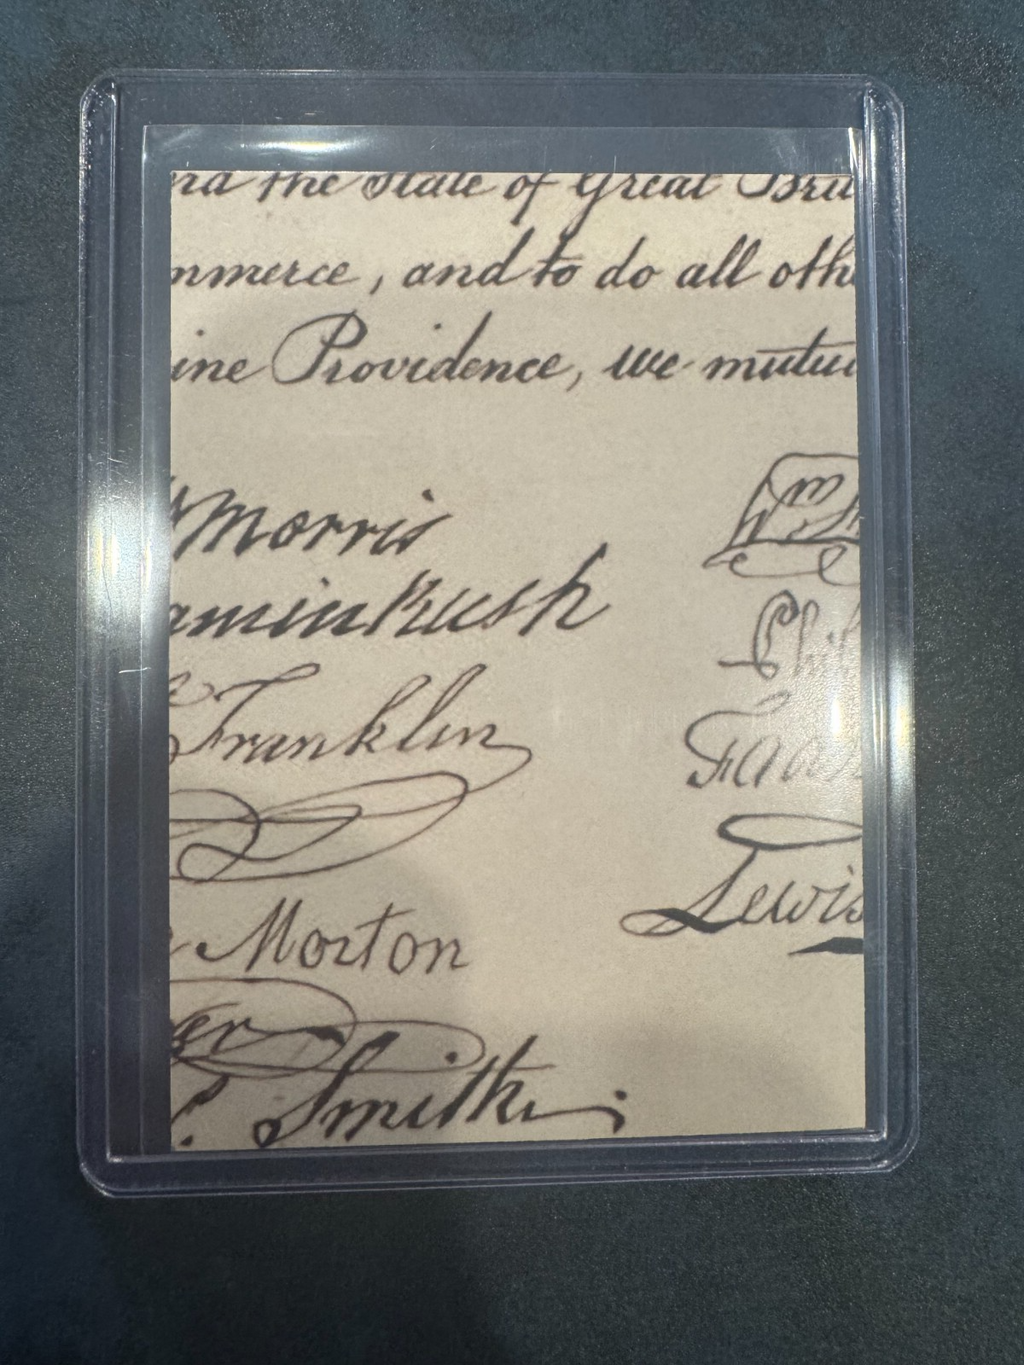 and the State of Great Brit
mmerce, and to do all othe
ine Providence, we mutua
Morris
amin Rush
Franklin
Morton
er
Smith
Wm
Phil
Lewis